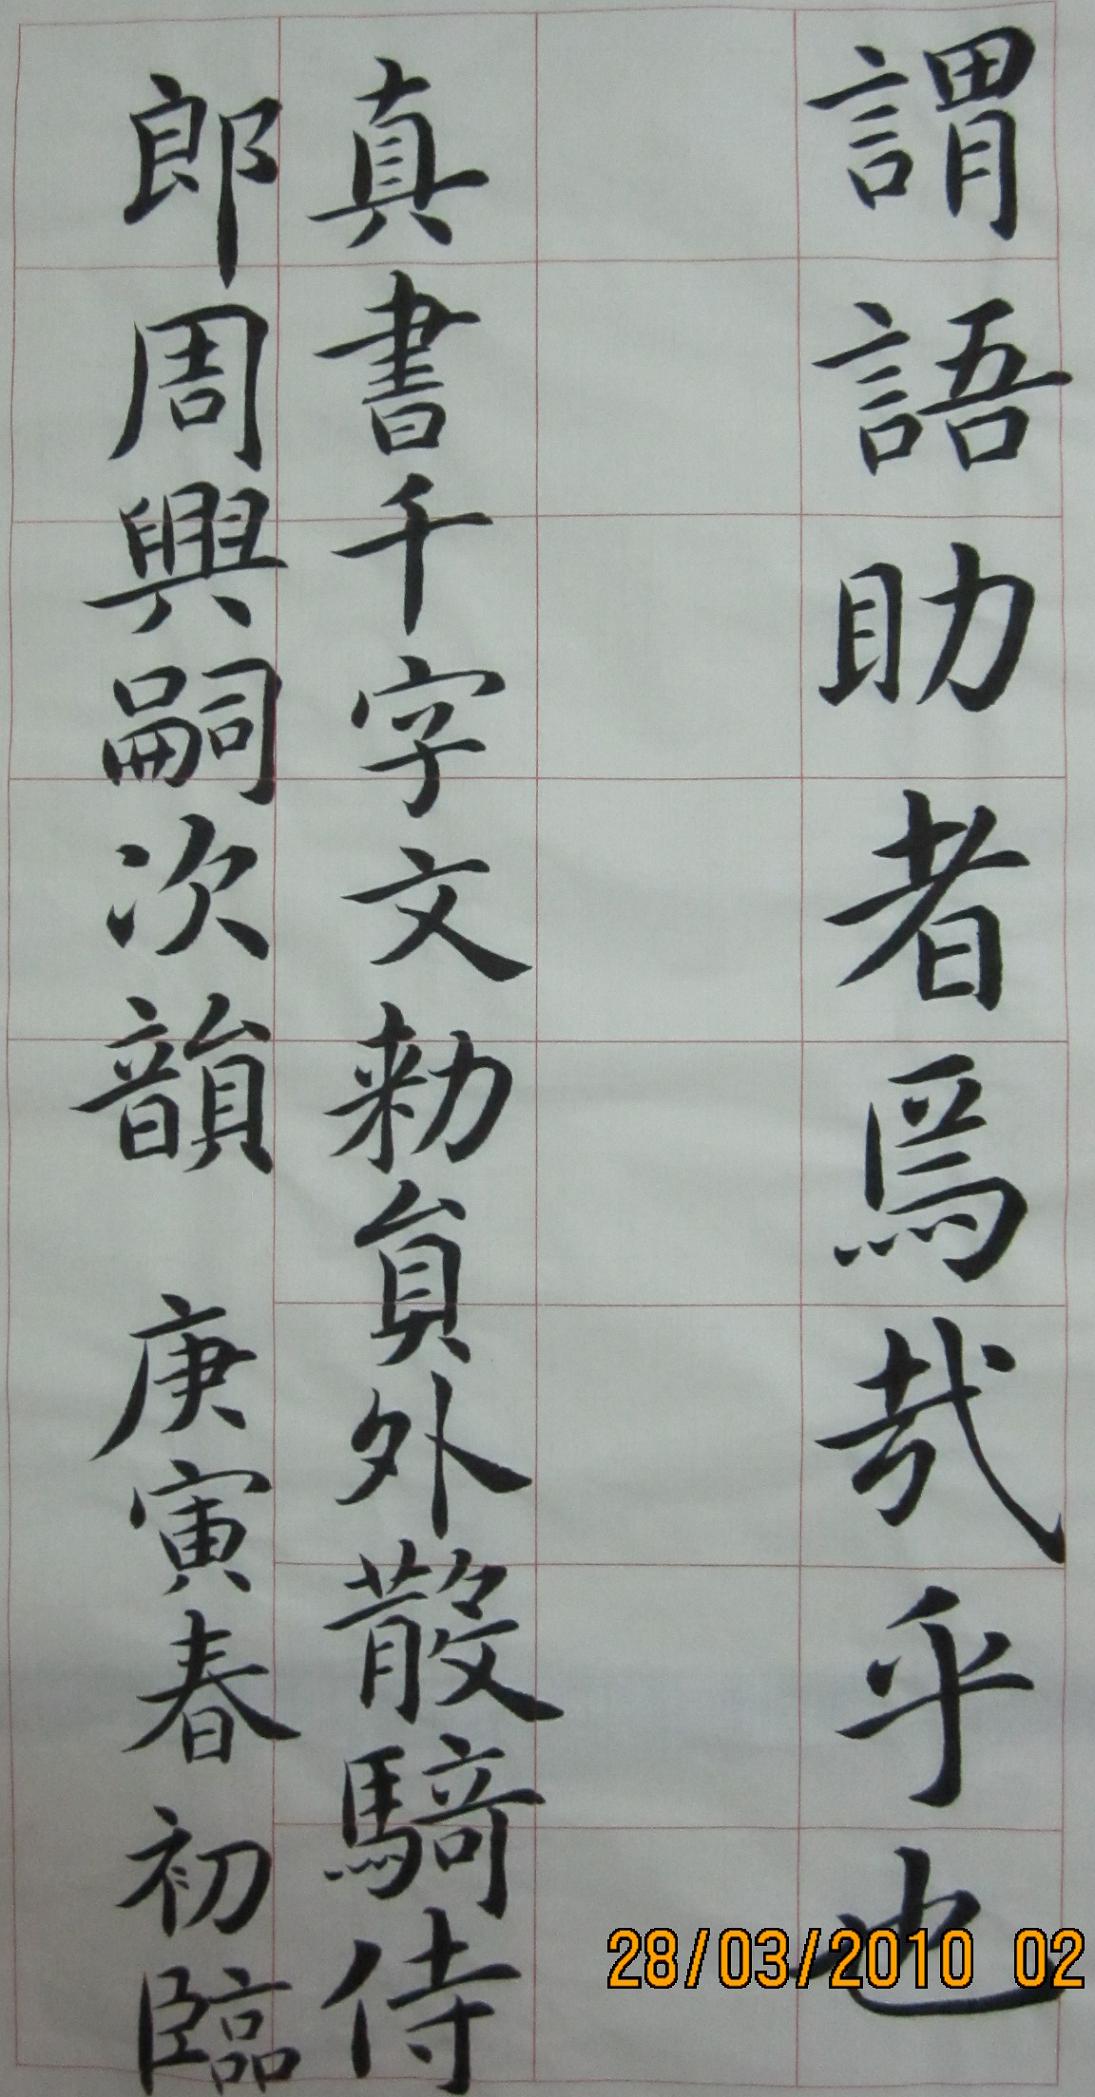 謂語助者焉哉乎也
真書千字文勑員外散騎侍
郎周興嗣次韻 庚寅春初臨
28/03/2010 02